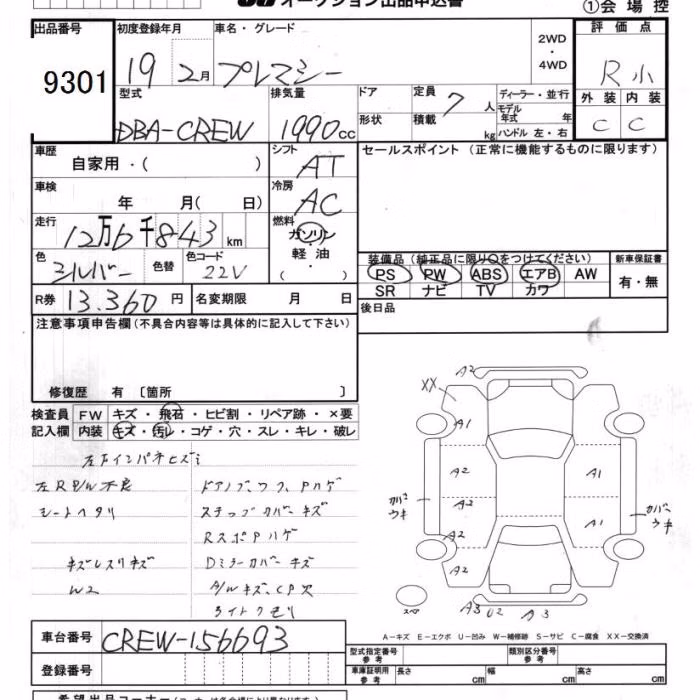 オークション出品申込書
①会場控
出品番号 9301
初度登録年月 19 2月
車名・グレード プレマシー
2WD ・ 4WD
評価点 R 小
外装 内装
C C
型式 DBA-CREW
排気量 1990 cc
ドア
形状
定員 7 人
積載 kg
ディーラー・並行
モデル年式 年
ハンドル 左・右
車歴 自家用・( )
シフト AT
セールスポイント (正常に機能するものに限ります)
車検 年 月( 日)
冷房 AC
走行 12万6千843 km
燃料 ガソリン ・ 軽油 ・ ( )
色 シルバー
色替
色コード 22V
装備品 (純正品に限り○をつけてください)
新車保証書
PS PW ABS エアB AW
SR ナビ TV カワ
有・無
R券 13.360 円
名変期限 月 日
後日品
注意事項申告欄 (不具合内容等は具体的に記入して下さい)
修復歴 有 〔箇所 〕
検査員記入欄
FW キズ・飛石・ヒビ割・リペア跡・×要
内装 キズ・汚レ・コゲ・穴・スレ・キレ・破レ
左R P/W不良
シートヘタリ
W2
ステップカバーキズ
Dミラーカバーキズ
A/Wキズ、CP欠
ライトクモリ
XX
A2
A1
A2
A1
A2
A1
A2
A2
カバーウキ
カバーウキ
スペ
A3 U2 A3
A-キズ E-エクボ U-凹み W-補修跡 S-サビ C-腐食 XX-交換済
車台番号 CREW-156693
登録番号
型式指定番号 参考
類別区分番号 参考
車庫証明用 参考 長さ cm 幅 cm 高さ cm
希望出品コーナー